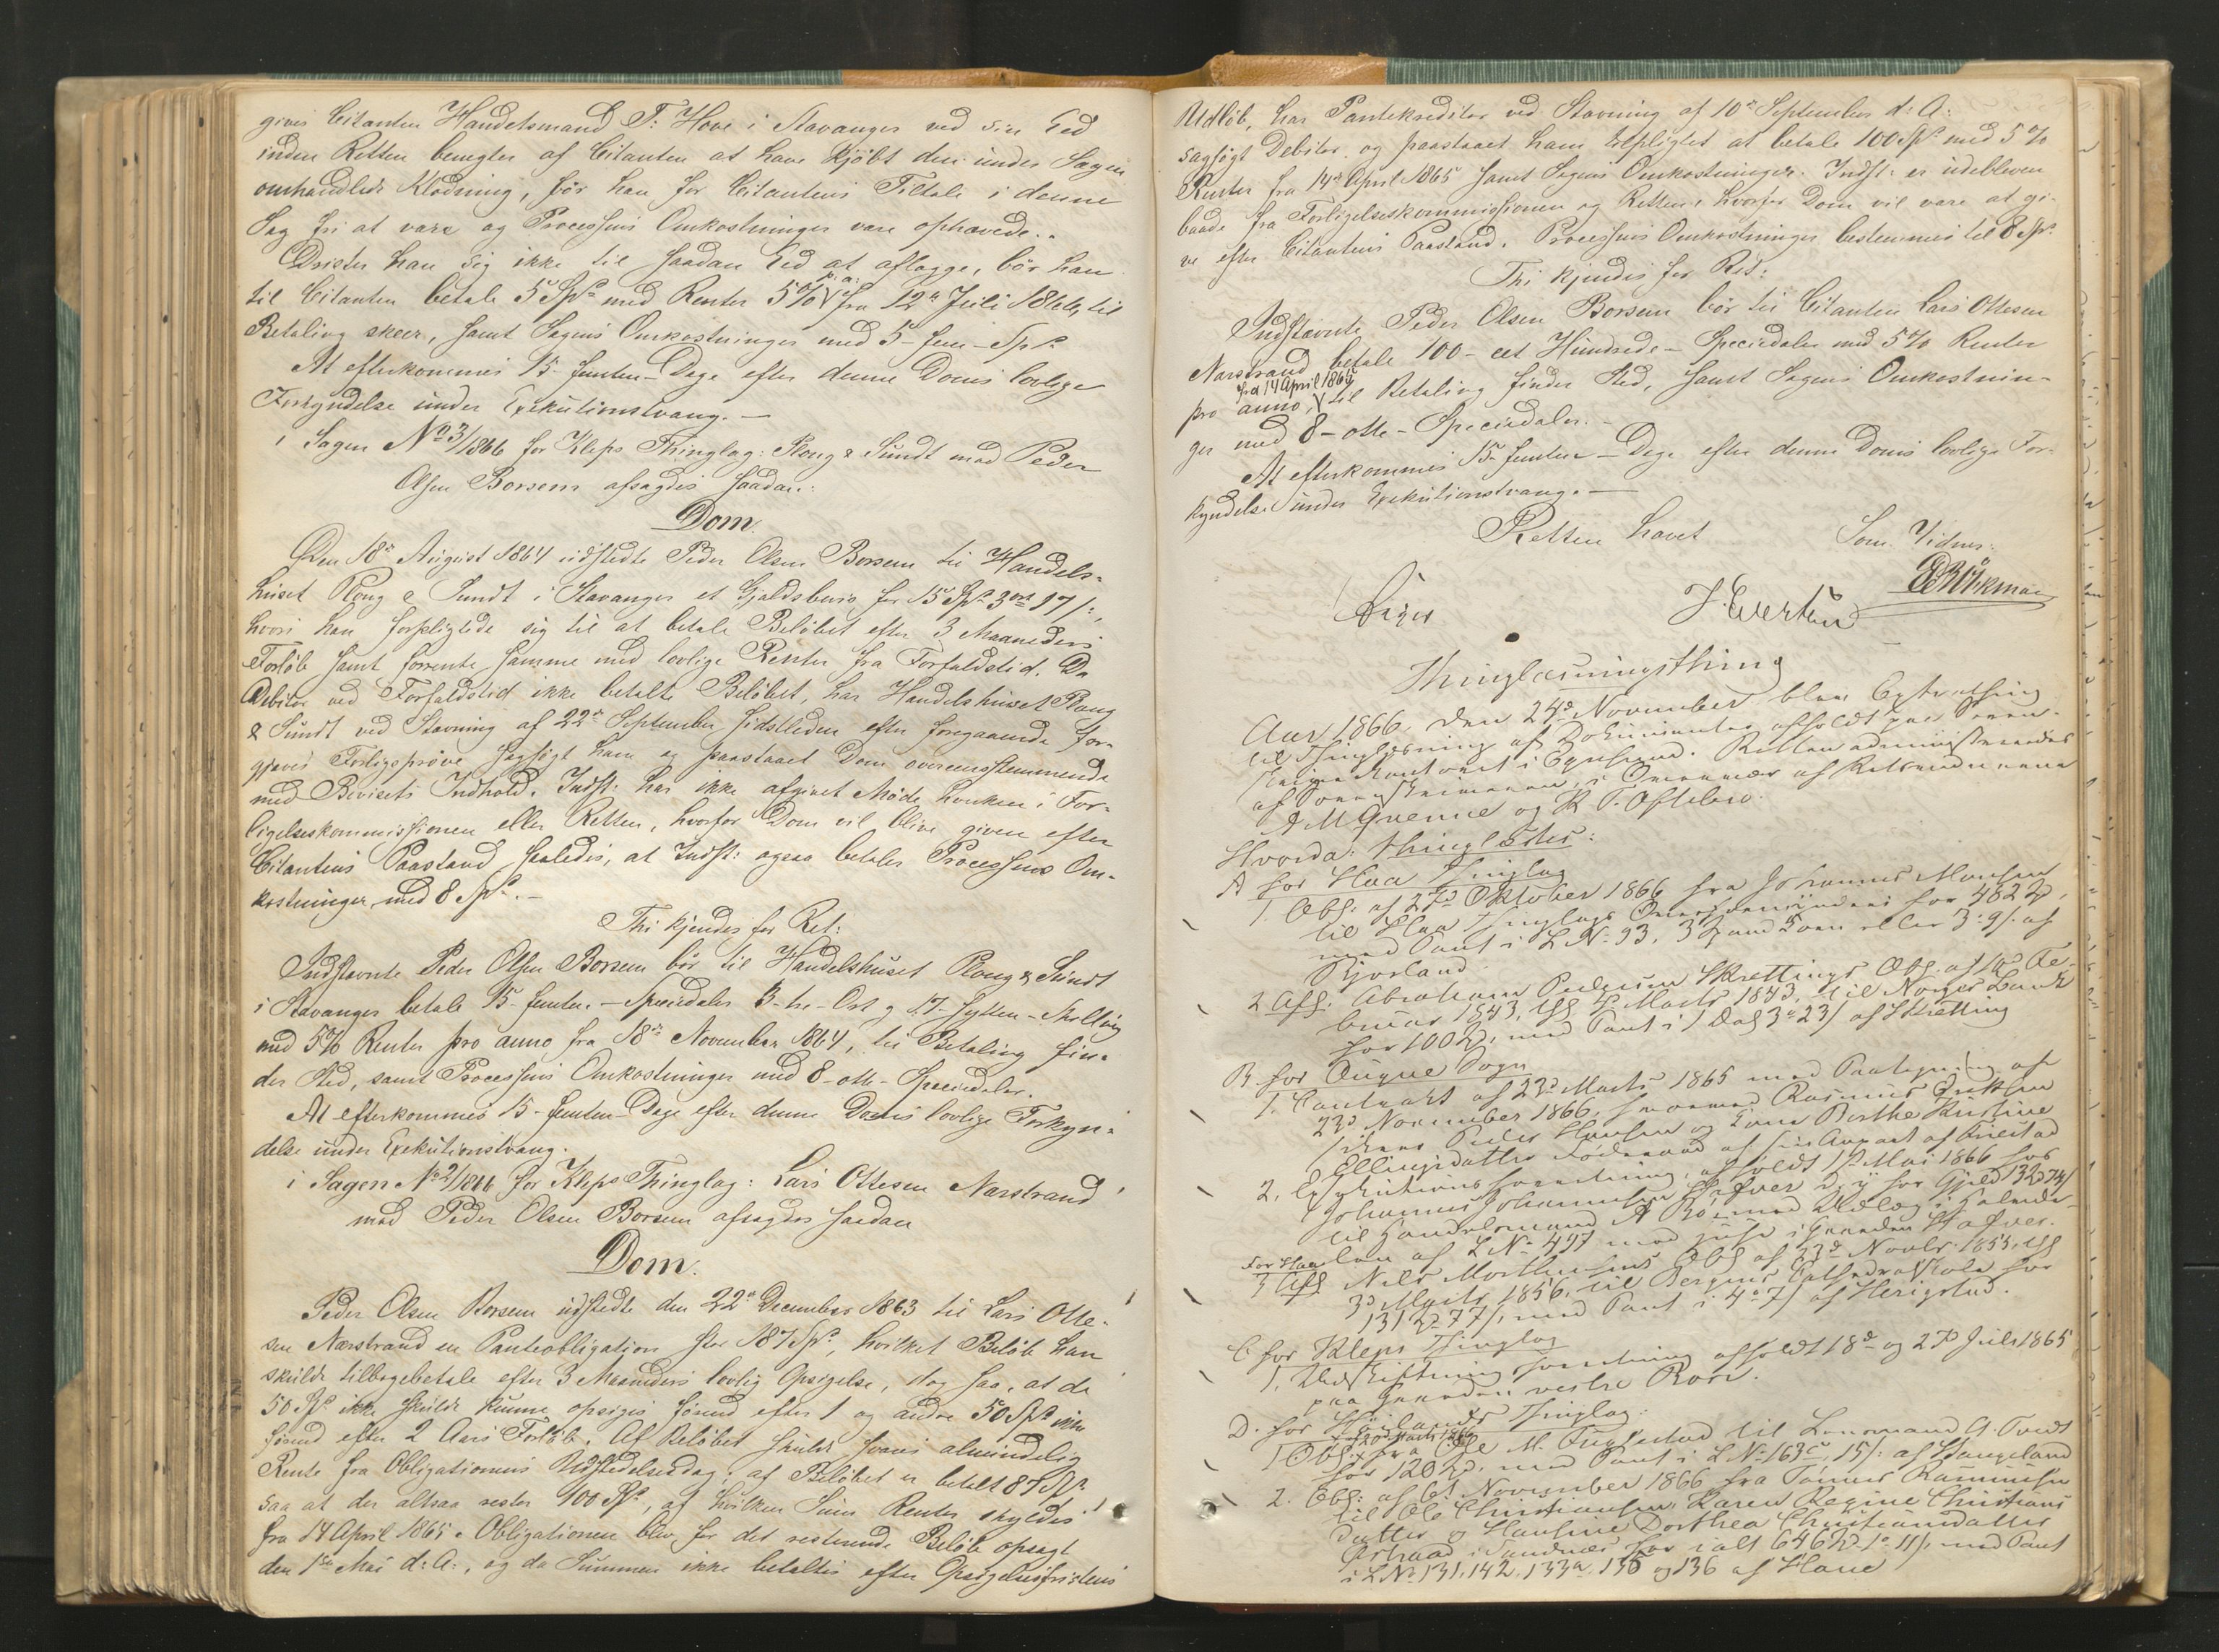 gives Citanten Handelsmand T: Hove i Stavanger ved sin Ed
inden Retten benegter af Citanten at have kjöbt den under Sagen
omhandlede Klædning, bör han for Citantens Tiltale i denne
Sag fri at være og Processens Omkostninger være ophævede.
Drister han sig ikke til saadan Ed at aflægge, bör han
til Citanten betale 5 Spd med Renter 5% p: a: fra 12te Juli 1866 til
Betaling skeer, samt Sagens Omkostninger med 5 - fem - Spd.
At efterkommes 15 - femten - Dage efter denne Doms lovlige
Forkyndelse under Exekutionstvang. —
i Sagen No 3/1866 for Kleps Thinglag: Ploug & Sundt mod Peder
Olsen Borsem afsagdes saadan:
Dom.
Den 18de August 1864 udstedte Peder Olsen Borsem til Handels-
huset Ploug & Sundt i Stavanger et Gjældsbevis for 15 Spd 3 ort 17 s:,
hvori han forpligtede sig til at betale Belöbet efter 3 Maaneders
Forlöb samt forrente samme med lovlige Renter fra Forfaldstid. Da
Debitor ved Forfaldstid ikke betalte Belöbet, har Handelshuset Ploug
& Sundt ved Stævning af 22de September sidstleden efter foregaaende for-
gjæves Forligspröve sagsögt ham og paastaaet Dom overensstemmende
med Bevisets Indhold. Indst: har ikke afgivet Möde, hverken i For-
ligelseskommissionen eller Retten, hvorfor Dom vil blive given efter
Citantens Paastand saaledes, at Indst: ogsaa betaler Processens Om-
kostninger med 8 Spd. —
Thi kjendes for Ret:
Indstævnte Peder Olsen Borsem bör til Handelshuset Ploug & Sundt
i Stavanger betale 15 - femten - Speciedaler 3 - tre - Ort og 17 - sytten - Skilling
med 5% Renter pro anno fra 18de November 1864, til Betaling fin-
der Sted, samt Processens Omkostninger med 8 - otte - Speciedaler.
At efterkommes 15 - femten - Dage efter denne Doms lovlige Forkyn-
delse under Exekutionstvang.
i Sagen No 2/1866 for Kleps Thinglag: Lars Ottesen Narstrand
mod Peder Olsen Borsem afsagdes saadan
Dom.
Peder Olsen Borsem udstedte den 22de December 1863 til Lars Otte-
sen Narstrand en Panteobligation stor 187 Spd, hvilket Belöb han
skulde tilbagebetale efter 3 Maaneders lovlig Opsigelse, dog saa, at de
50 Spd ikke skulde kunne opsiges förend efter 1 og andre 50 Spd ikke
förend efter 2 Aars Forlöb. Af Belöbet skulde svares almindelig
Rente fra Obligationens Udstedelsesdag; af Belöbet er betalt 87 Spd
saa at der altsaa rester 100 Spd, af hvilken Sum Renter skyldes
fra 14 April 1865. Obligationen blev for det resterende Belöb opsagt
den 1ste Mai d: A:, og da Summen ikke betaltes efter Opsigelsesfristens
Udlöb, har Pantekreditor ved Stævning af 10de September d: A:
sagsögt Debitor og paastaaet ham forpligtet at betale 100 Spd med 5%
Renter fra 14de April 1865 samt Sagens Omkostninger. Indst: er udebleven
baade fra Forligelseskommissionen og Retten, hvorfor Dom vil være at gi-
ve efter Citantens Paastand. Processens Omkostninger bestemmes til 8 Spd.
Thi kjendes for Ret:
Indstævnte Peder Olsen Borsem bör til Citanten Lars Ottesen
Narstrand betale 100 - eet Hundrede - Speciedaler med 5% Renter
pro anno, fra 14 April 1865 til Betaling finder Sted, samt Sagens Omkostnin-
ger med 8 - otte - Speciedaler. -
At efterkommes 15 - femten - Dage efter denne Doms lovlige For-
kyndelse under Exekutionstvang. —
Retten hævet
Som Vidner:
Thinglæsningsthing
Aar 1866, den 24de November blev Extrathing
til Thinglæsning af Dokumenter afholdt paa Soren-
skriverkontoret i Egersund. Retten administreredes
af Sorenskriveren, i Overvær af Retsvidnerne
Hvorda: thinglæstes:
A for Haa Thinglag
1. Obl: af 27de Oktober 1866 fra Johannes Monsen
til Haa Thinglags Overformynderi for 482 Spd,
med Pant i L No 93.
2 Afl. Abraham Skrettings Obl. af 14de Fe-
bruar 1843, til Norges Bank
for 100 Spd, med Pant i 1 Dal 3 o 23 s af Skretting
B. for Ougne Sogn
1. Contract af 23de Marts 1865 med Paategning af
23de November 1866, hvorved Rasmus Eriksen
Peder Hansen og Kone Berthe Kristine
Ellingsdatter Föderaad af
2. Exekutionsforretning, afholdt 1ste Mai 1866 hos
Johannes Johannesen for Gjeld 13
til Handelsmand
af L No 497 med Huse i Gaarden
For Haa
3 Afl Nils Obl af 23de Novbr. 1855, thl
3de Marts 1856, til Bergens Cathedralskole for
131 Spd 77 s, med Pant i 4 o 7 s af Herigstad.
C for Kleps Thinglag
1. Udskiftningsforretning afholdt 18de og 27de Juli 1865
paa Gaarden vestre Roen.
D. for Höilands Thinglag:
1 Obl: fra Ole M. Fuglestad til Lensmand A. Tvedt
for 120 Spd, med Pant i L No 163 c, 15 s: af Stangeland
2. Obl: af 6te November 1866 fra Rasmussen
til Ole Christiansen, Karen Regine Christians
datter og Hansine Dorthea Christiansdatter
i Sandnæs for ialt 646 Spd 1 o 11 s, med Pant
i L No 131, 142, 133a, 135 og 136 af Hane